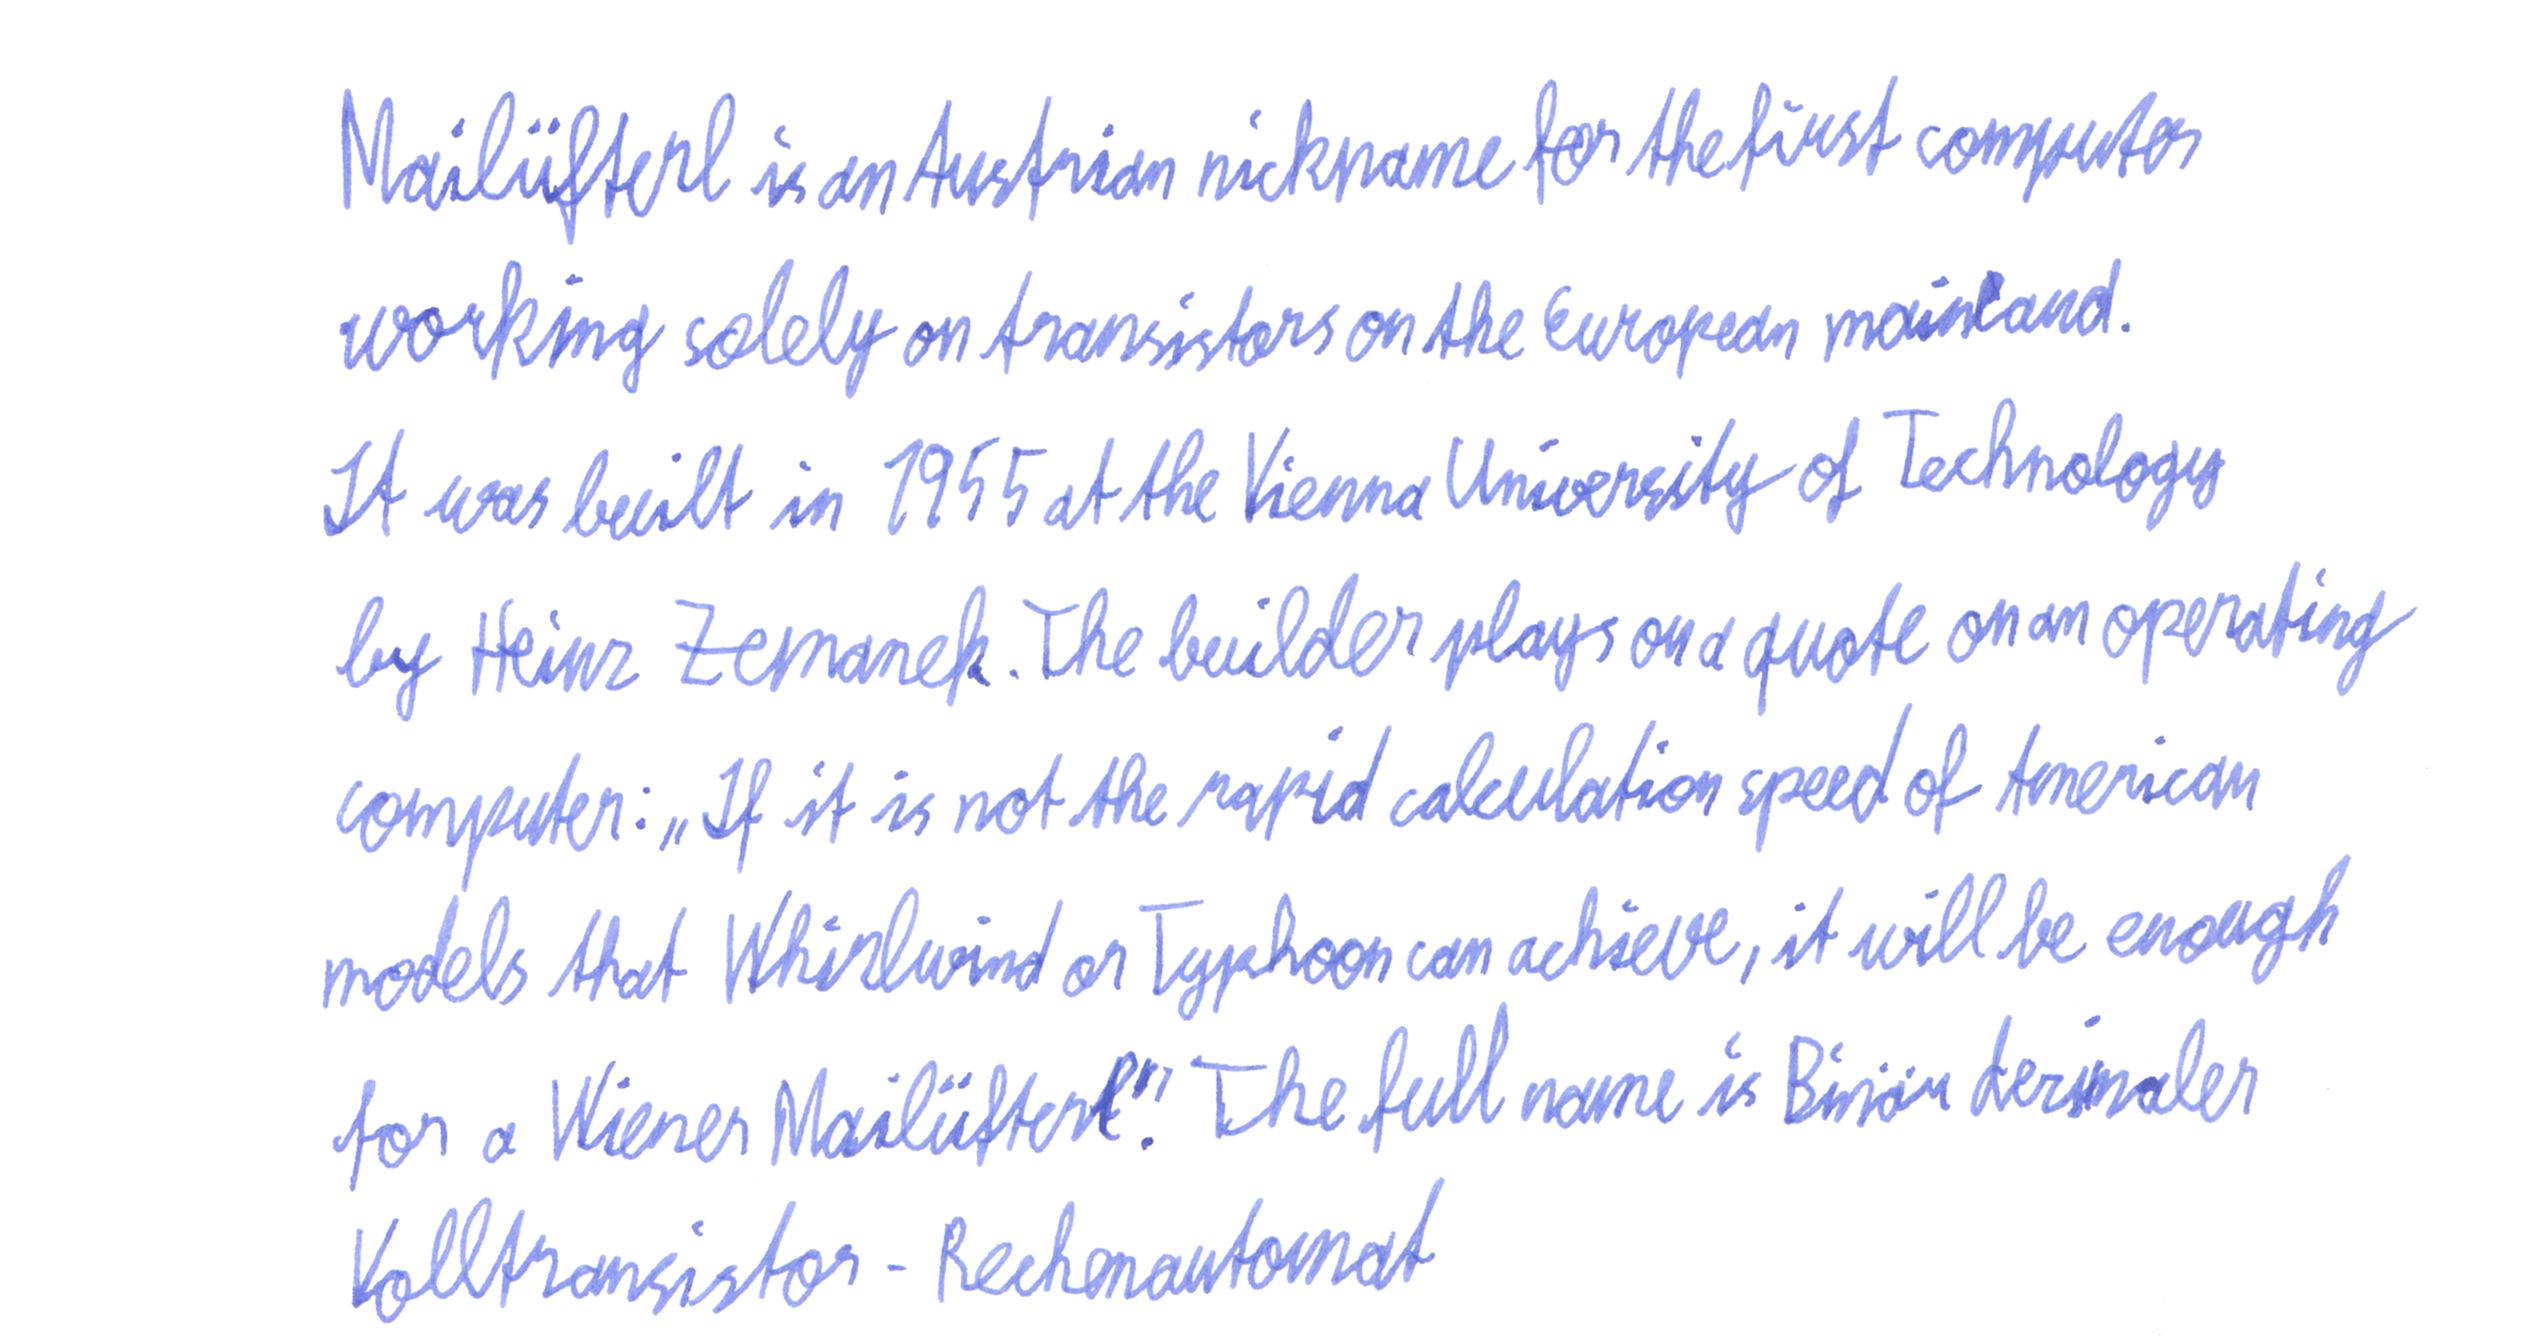 Mailüfterl is an Austrian nickname for the first computer
working solely on transistors on the European mainland.
It was built in 1955 at the Vienna University of Technology
by Heinz Zemanek. The builder plays on a quote on an operating
computer: „If it is not the rapid calculation speed of American
models that Whirlwind or Typhoon can achieve, it will be enough
for a Wiener Mailüfterl". The full name is Binär dezimaler
Volltransistor - Rechenautomat